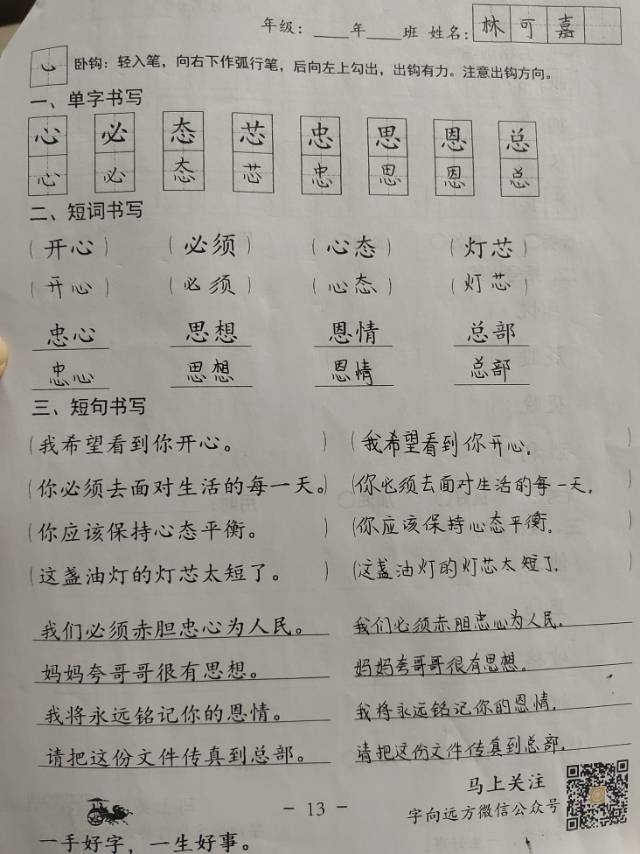 年级：____年____班 姓名：林可嘉
心 卧钩：轻入笔，向右下作弧行笔，后向左上勾出，出钩有力。注意出钩方向。
一、单字书写
心 必 态 芯 忠 思 恩 总
心 必 态 芯 忠 思 恩 总
二、短词书写
（开心） （必须） （心态） （灯芯）
（开心） （必须） （心态） （灯芯）
忠心 思想 恩情 总部
忠心 思想 恩情 总部
三、短句书写
（我希望看到你开心。） （我希望看到你开心。）
（你必须去面对生活的每一天。） （你必须去面对生活的每一天。）
（你应该保持心态平衡。） （你应该保持心态平衡。）
（这盏油灯的灯芯太短了。） （这盏油灯的灯芯太短了。）
我们必须赤胆忠心为人民。 我们必须赤胆忠心为人民。
妈妈夸哥哥很有思想。 妈妈夸哥哥很有思想。
我将永远铭记你的恩情。 我将永远铭记你的恩情。
请把这份文件传真到总部。 请把这份文件传真到总部。
马上关注
- 13 -
字向远方微信公众号
一手好字，一生好事。